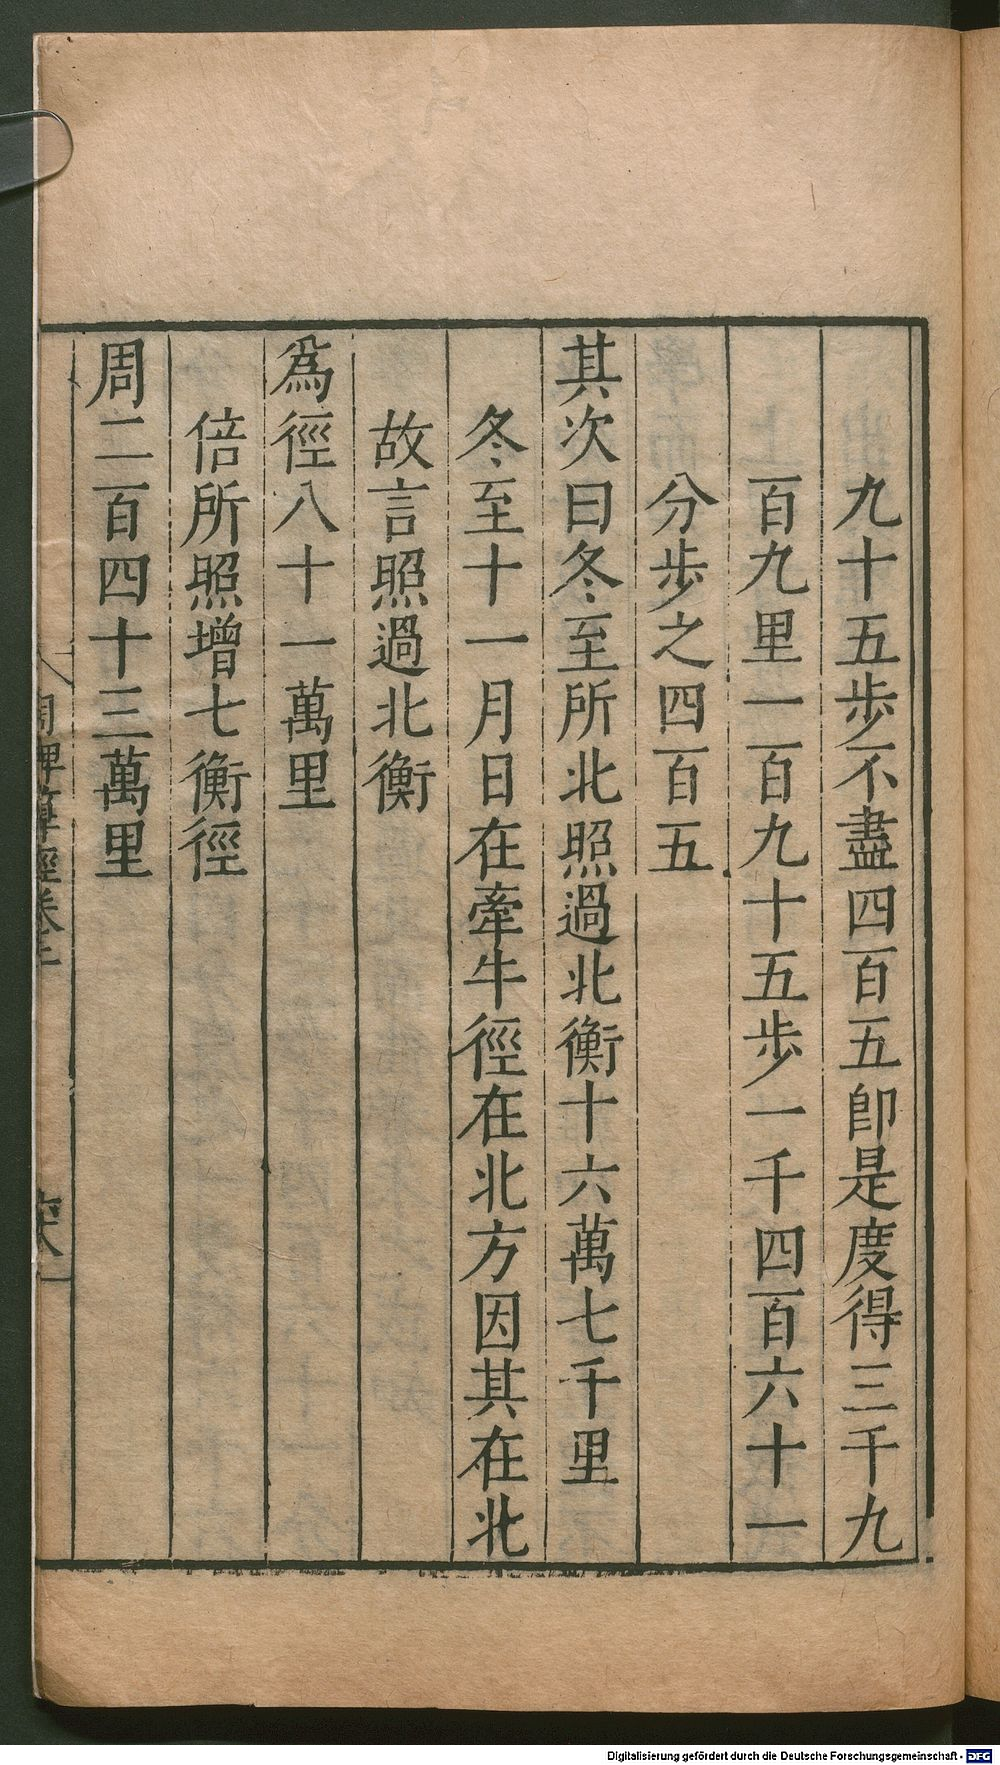 九十五歩不盡四百五卽是度得三千九
百九里一百九十五步一千四百六十一
分步之四百五
其次曰冬至所北照過北衡十六萬七千里
冬至十一月日在牽牛徑在北方因其在北
故言照過北衡
爲徑八十一萬里
倍所照增七衡徑
周二百四十三萬里
周髀算經卷上
Digitalisierung gefördert durch die Deutsche Forschungsgemeinschaft - DFG